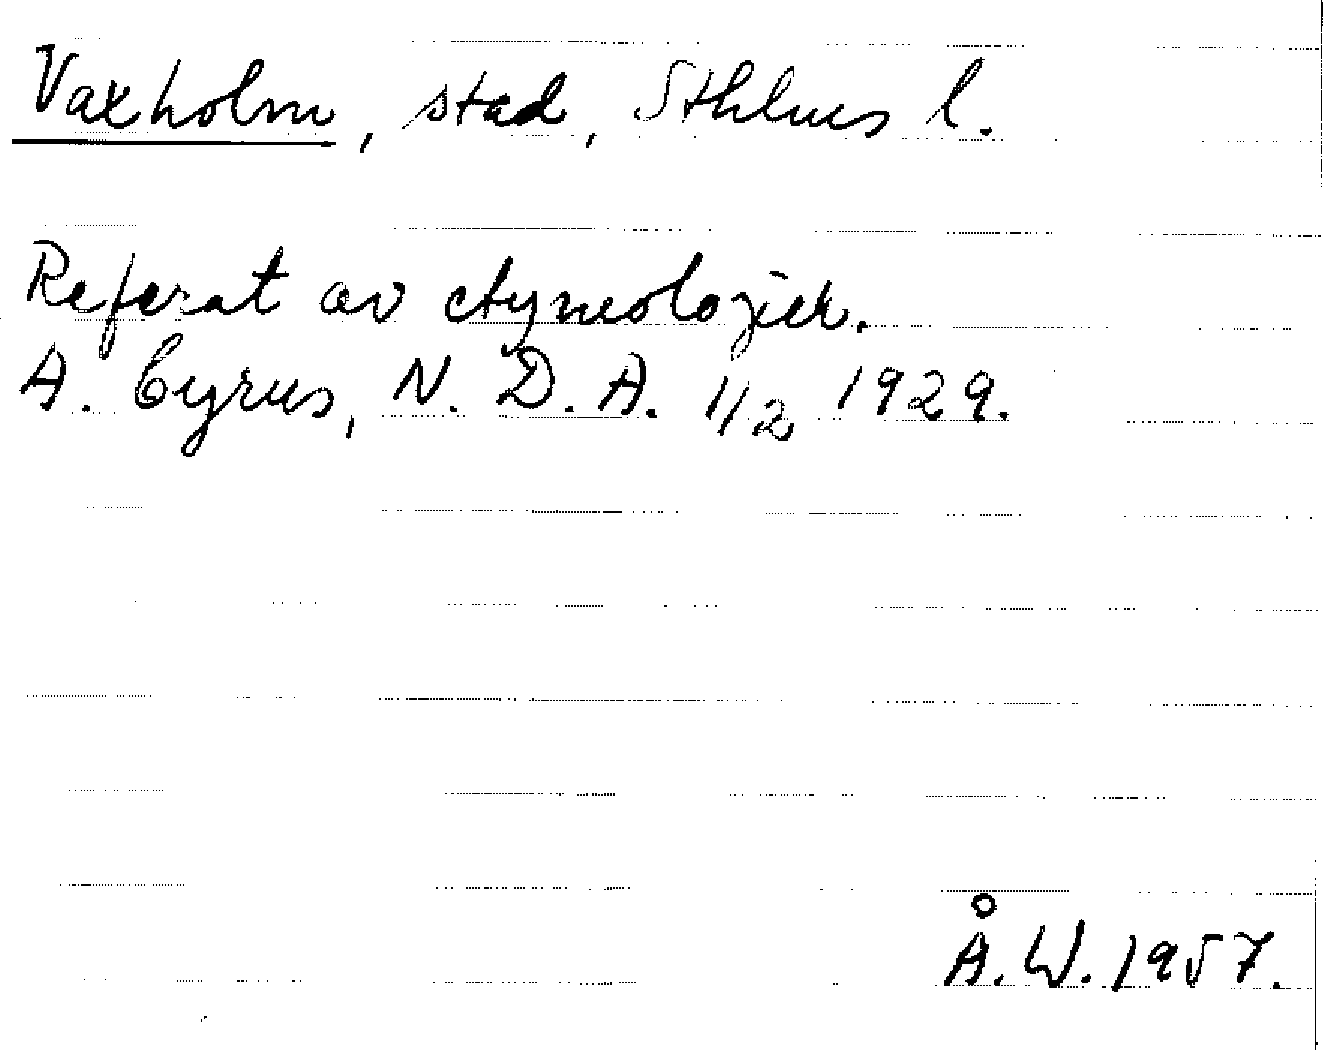 Vaxholm, stad, Sthlms l.
Referat av etymologier.
A. Cyrus, N. D. A. 1/2 1929.
Å. W. 1957.